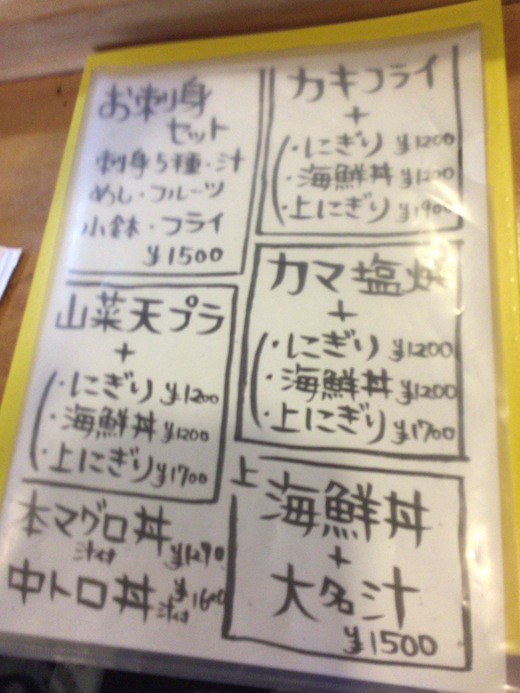 お刺身
セット
刺身5種・汁
めし・フルーツ
小鉢・フライ
¥1500
山菜天プラ
+
・にぎり ¥1200
・海鮮丼 ¥1200
・上にぎり ¥1700
本マグロ丼
汁付 ¥1290
中トロ丼
汁付 ¥1600
カキフライ
+
・にぎり ¥1200
・海鮮丼 ¥1200
・上にぎり ¥1900
カマ塩焼
+
・にぎり ¥1200
・海鮮丼 ¥1200
・上にぎり ¥1700
上海鮮丼
+
大名汁
¥1500